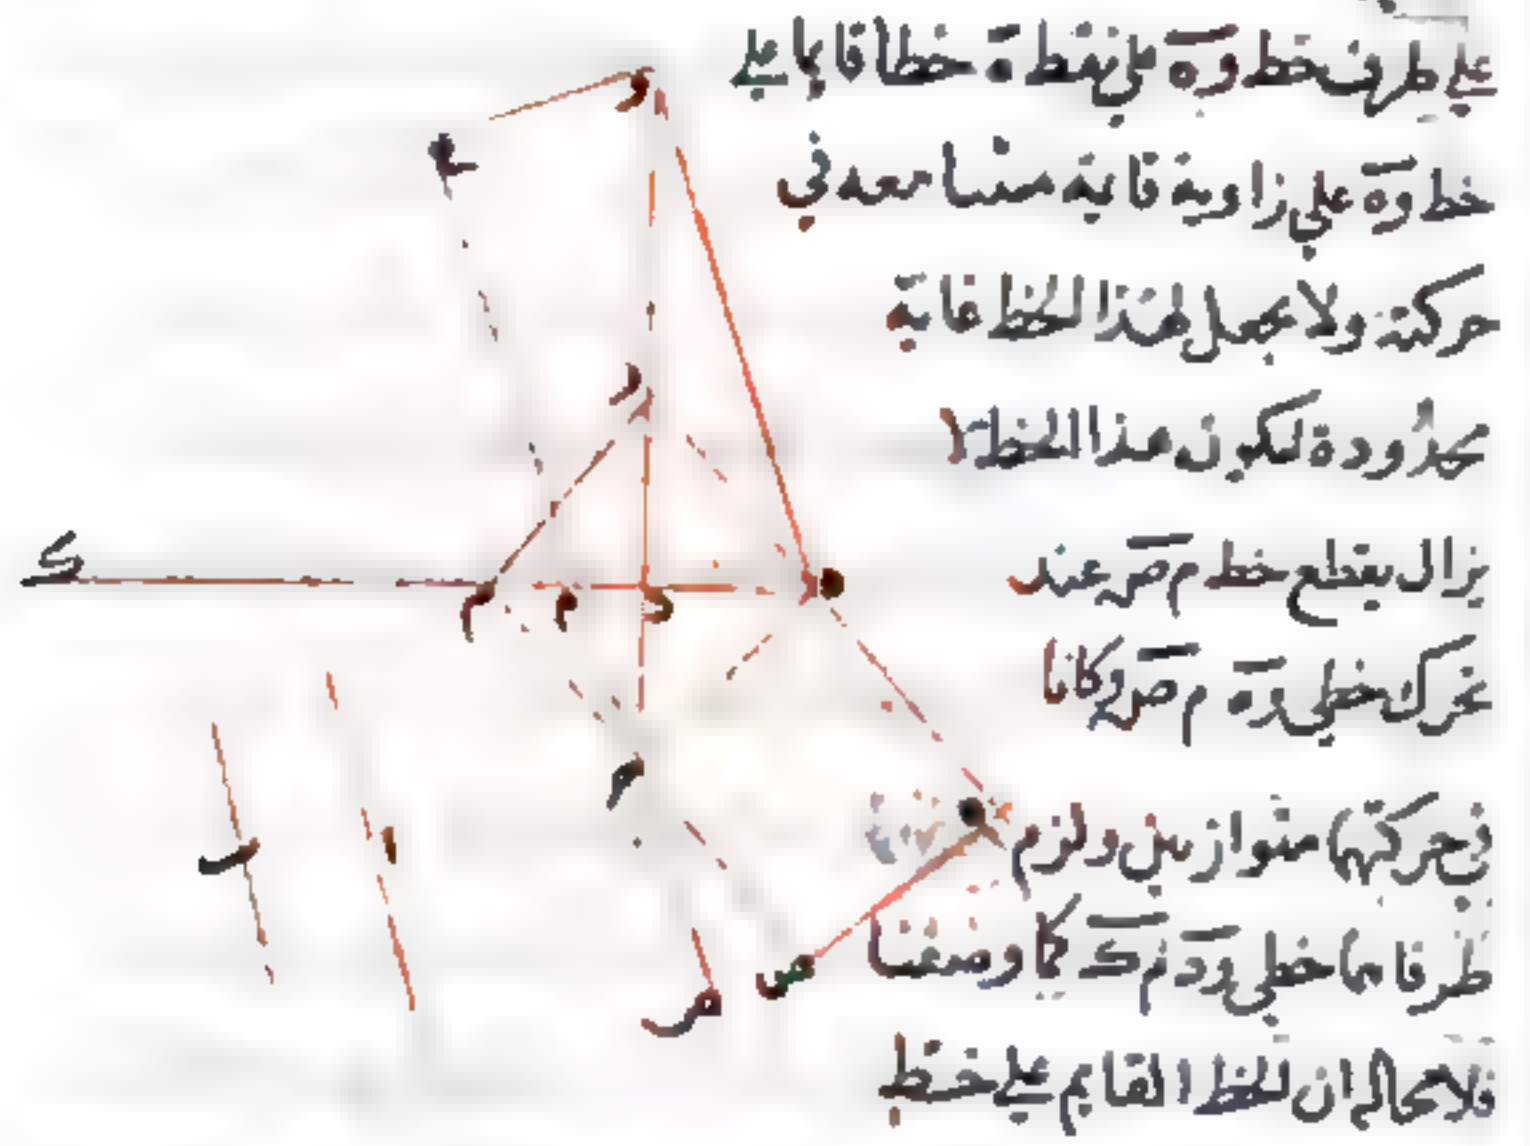 على طرف خط وه على نقطة ه خطا قايما على
خط وه على زاوية قايمة منسا معه في
حركته ولا نجعل لهذا الخط غاية
محدودة ليكون هذا الخط لا
يزال يقطع خط م ص عند
تحرك خطي وه م ص وكانا
في حركتهما متوازيين ولزم
طرفاهما خطي ود م ك كما وصفنا
فلا محالة ان الخط القايم على خط
و
ع
ر
ك
م
م
د
ه
ح
ا
ب
س
ص